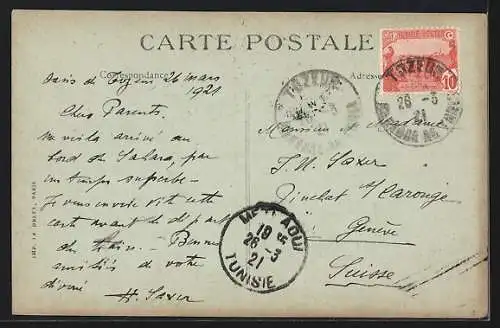 CARTE POSTALE
Correspondance
Adresse
Oasis de Tozeur 26 mars
1921
Chers Parents.
Me voila arrivé au
bord du Sahara, par
un temps superbe.
Je vous envoie vite cette
carte avant le départ
du train. Bonnes
amitiés de votre
dévoué
H. Saxer
Monsieur et Madame
J. U. Saxer
Pinchat s/Carouge
Genève
Suisse
TOZEUR
26 -3
21
10
METLAOUI
18
26 -3
21
TUNISIE
IMP. PARIS